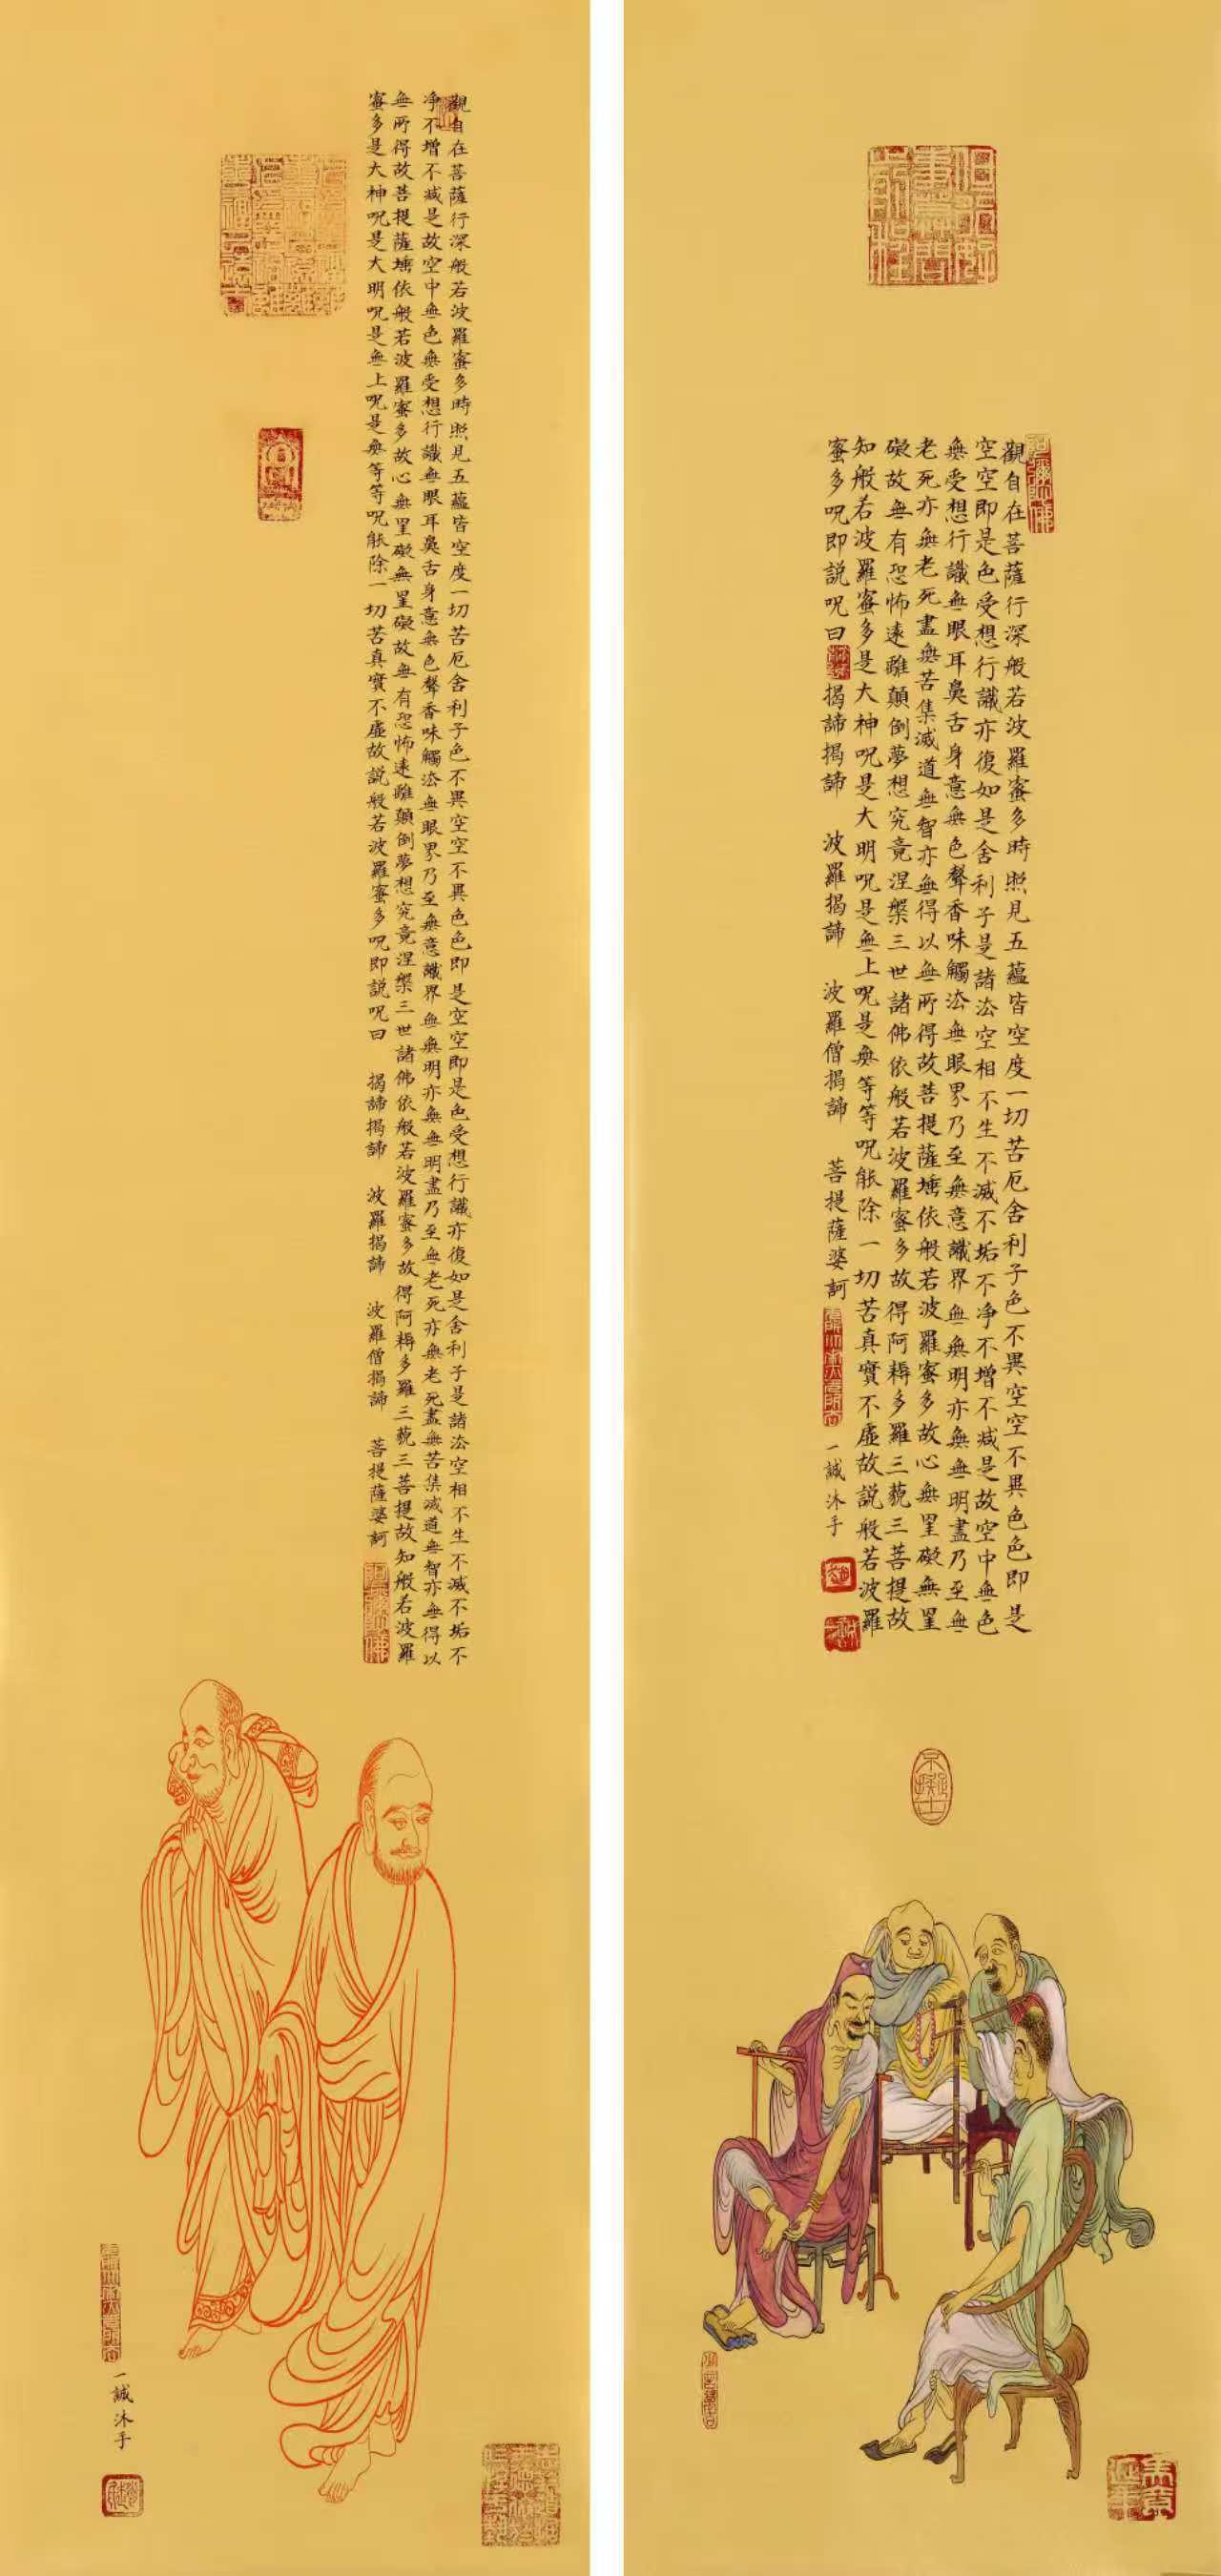 觀自在菩薩行深般若波羅蜜多時照見五蘊皆空度一切苦厄舍利子色不異空空不異色色即是空空即是色受想行識亦復如是舍利子是諸法空相不生不滅不垢不
净不增不減是故空中無色無受想行識無眼耳鼻舌身意無色聲香味觸法無眼界乃至無意識界無無明亦無無明盡乃至無老死亦無老死盡無苦集滅道無智亦無得以
無所得故菩提薩埵依般若波羅蜜多故心無罣礙無罣礙故無有恐怖遠離顛倒夢想究竟涅槃三世諸佛依般若波羅蜜多故得阿耨多羅三藐三菩提故知般若波羅
蜜多是大神呪是大明呪是無上呪是無等等呪能除一切苦真實不虛故説般若波羅蜜多呪即説呪曰 揭諦揭諦 波羅揭諦 波羅僧揭諦 菩提薩婆訶
阿彌陀佛
一誠沐手
阿彌陀佛
觀自在菩薩行深般若波羅蜜多時照見五蘊皆空度一切苦厄舍利子色不異空空不異色色即是
空空即是色受想行識亦復如是舍利子是諸法空相不生不滅不垢不净不增不減是故空中無色
無受想行識無眼耳鼻舌身意無色聲香味觸法無眼界乃至無意識界無無明亦無無明盡乃至無
老死亦無老死盡無苦集滅道無智亦無得以無所得故菩提薩埵依般若波羅蜜多故心無罣礙無罣
礙故無有恐怖遠離顛倒夢想究竟涅槃三世諸佛依般若波羅蜜多故得阿耨多羅三藐三菩提故
知般若波羅蜜多是大神呪是大明呪是無上呪是無等等呪能除一切苦真實不虛故説般若波羅
蜜多呪即説呪曰 揭諦揭諦 波羅揭諦 波羅僧揭諦 菩提薩婆訶
一誠沐手